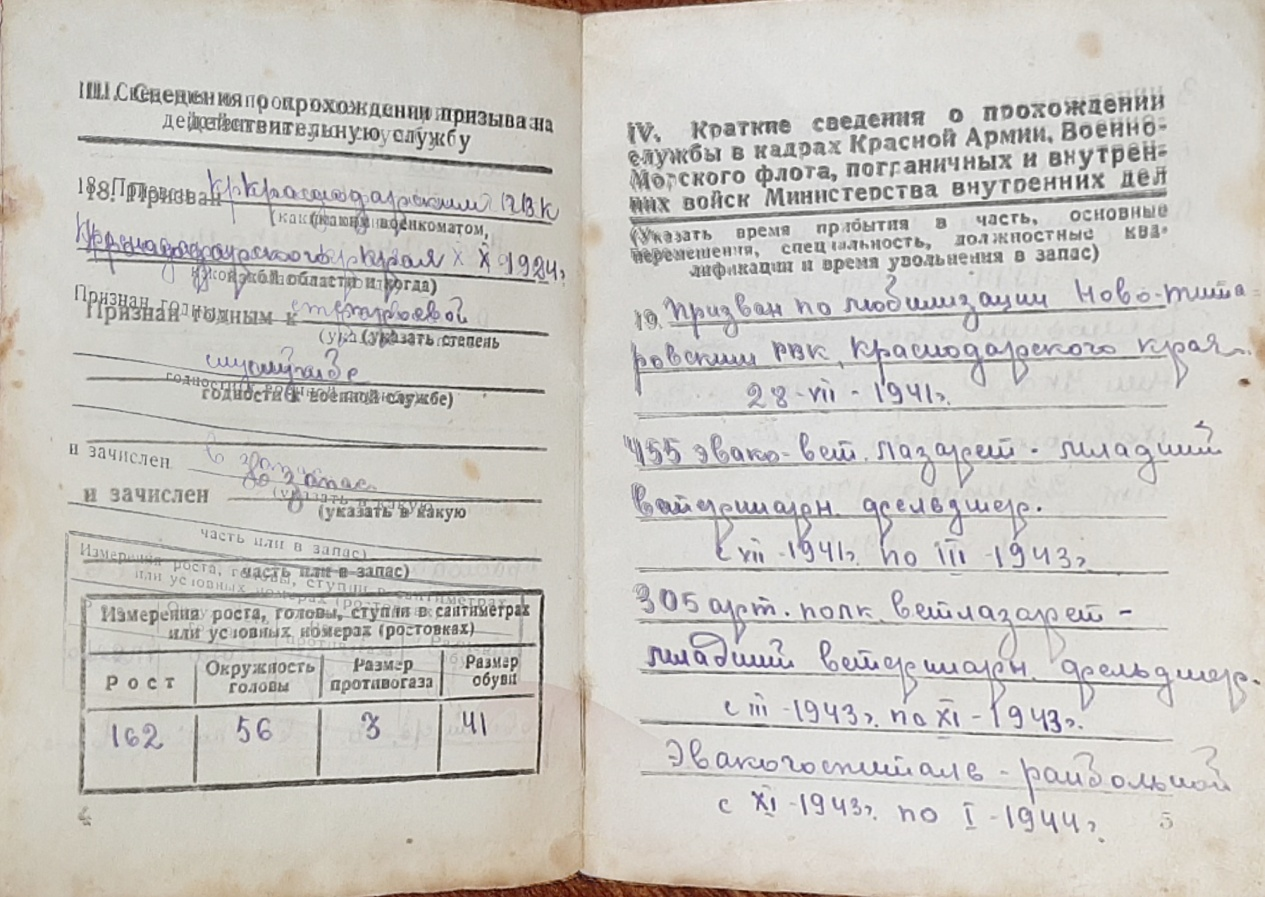 III. Сведения о прохождении призыва на
действительную службу
18. Призван Краснодарским РВК
(каким военкоматом,
Краснодарского края X 1924г.
какой области и когда)
Признан годным к строевой
(указать степень
службе
годности к военной службе)
и зачислен в запас
(указать в какую
часть или в запас)
Измерения роста, головы, ступни в сантиметрах
или условных номерах (ростовках)
Рост Окружность головы Размер противогаза Размер обуви
162 56 3 41
4
IV. Краткие сведения о прохождении
службы в кадрах Красной Армии, Военно-
Морского флота, пограничных и внутрен-
них войск Министерства внутренних дел
(Указать время прибытия в часть, основные
перемещения, специальность, должностные ква-
лификации и время увольнения в запас)
19. Призван по мобилизации Ново-тита
ровским РВК, Краснодарского края.
28-VII-1941г.
455 эвако-вет. лазарет - младший
ветеринарн. фельдшер.
с VII-1941г. по III-1943г.
305 арт. полк ветлазарет -
младший ветеринарн. фельдшер.
с III-1943г. по XI-1943г.
Эвакогоспиталь - ранбольной
с XI-1943г. по I-1944г.
5